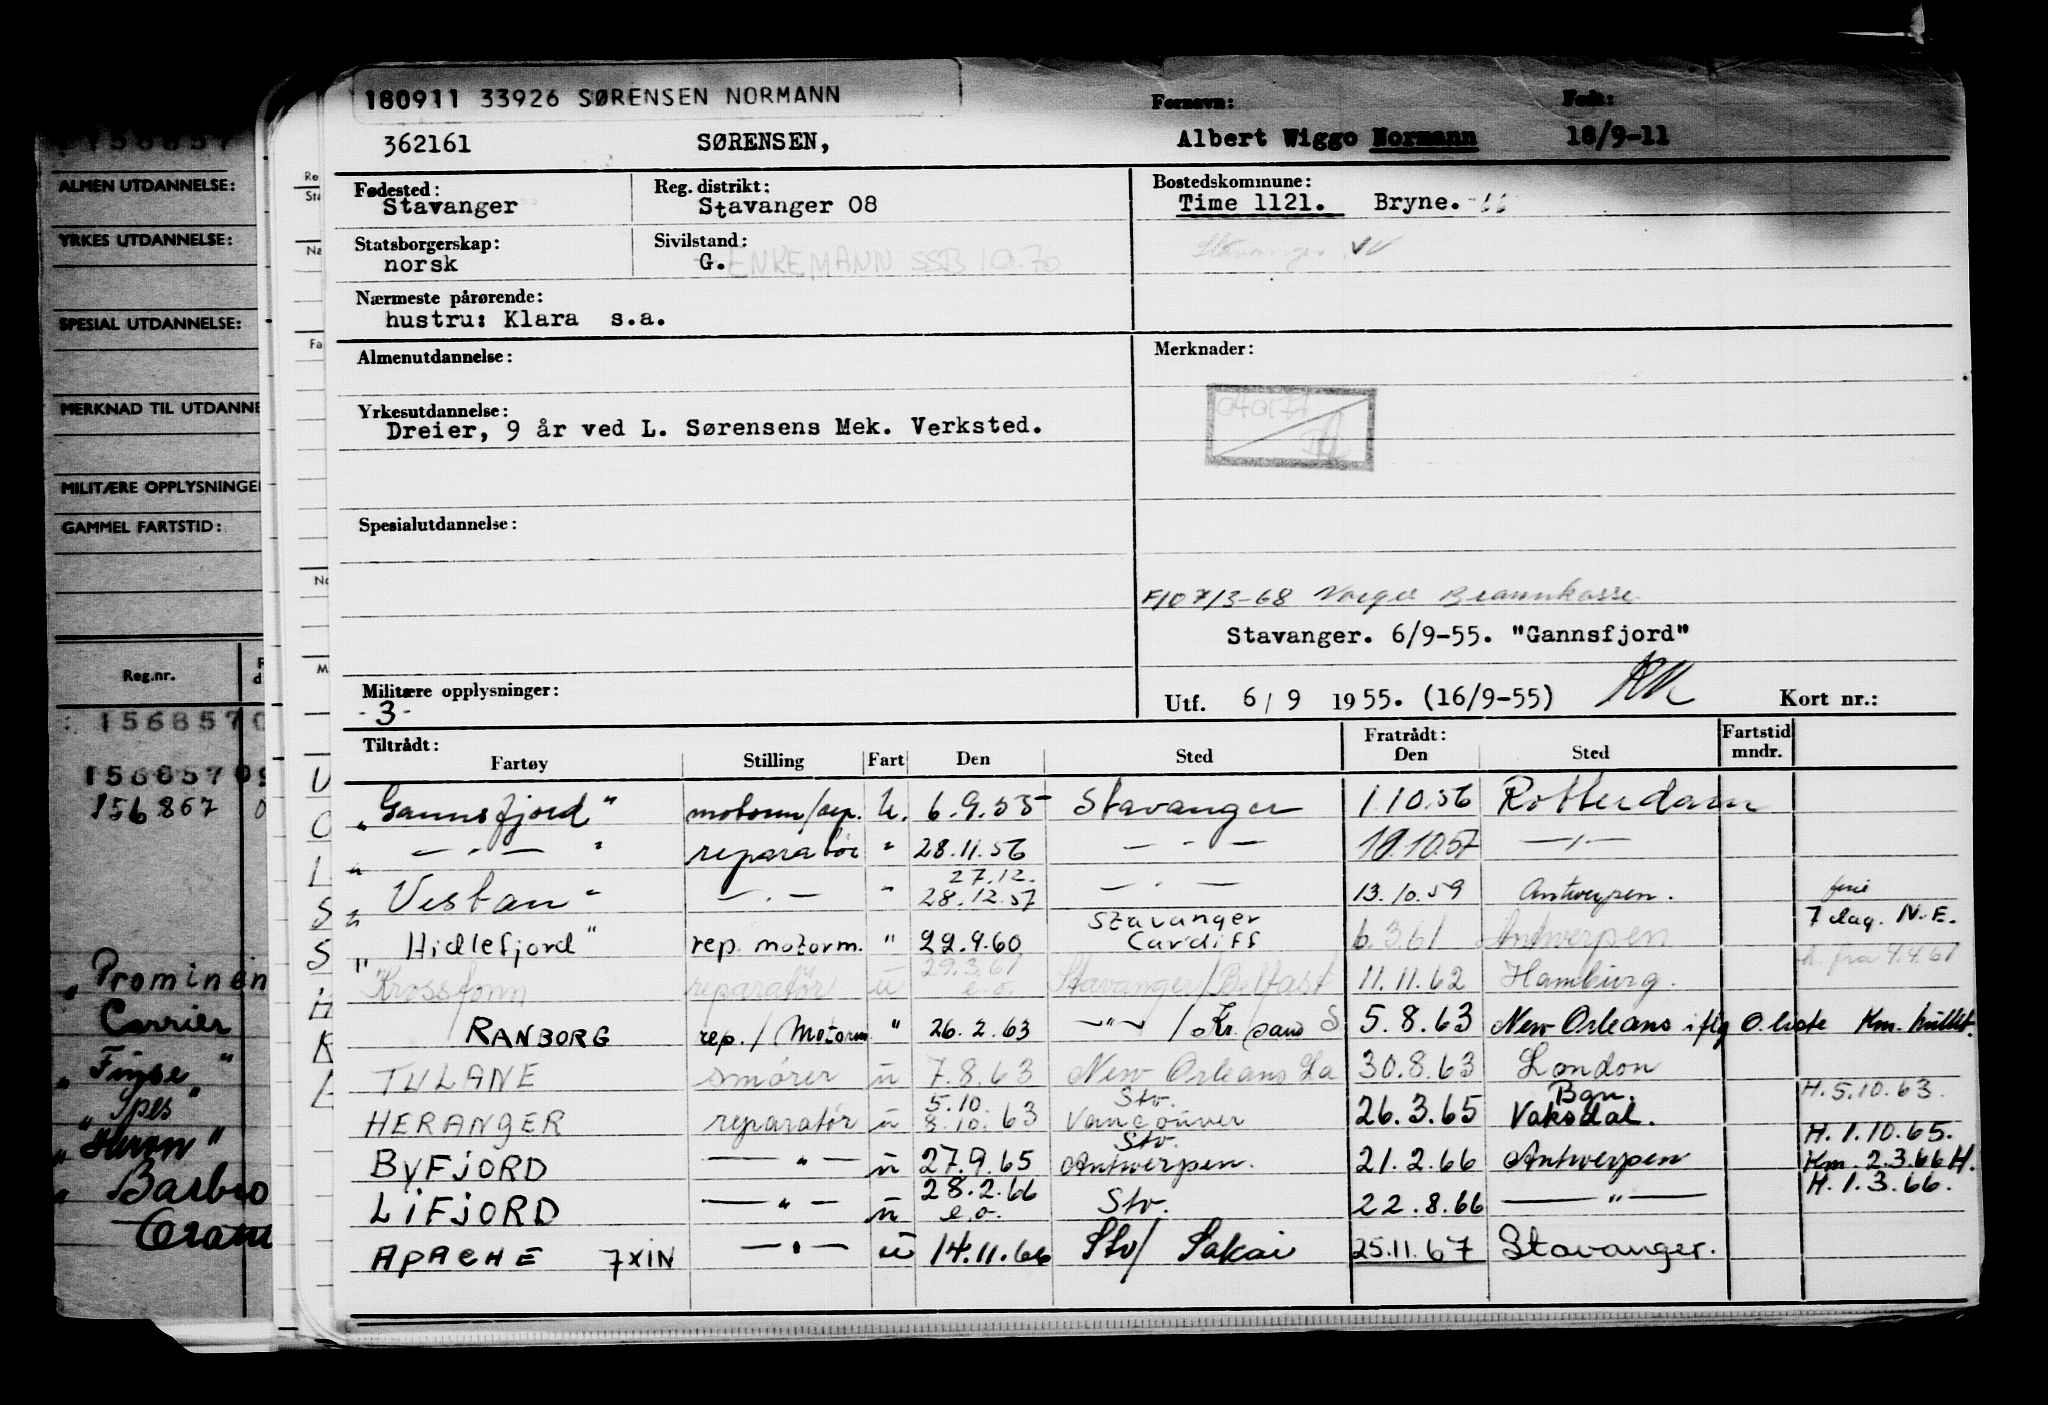 180911 33926 SØRENSEN NORMANN
Fornavn: Født:
362161 SØRENSEN, Albert Wiggo Normann 18/9-11
Fødested: Reg. distrikt: Bostedskommune:
Stavanger Stavanger 08 Time 1121. Bryne. 66
Statsborgerskap: Sivilstand: Stavanger
norsk G. ENKEMANN SSB 10.70
Nærmeste pårørende:
hustru: Klara s.a.
Almenutdannelse: Merknader:
Yrkesutdannelse:
Dreier, 9 år ved L. Sørensens Mek. Verksted.
Spesialutdannelse:
Norges Brannkasse
Stavanger. 6/9-55. "Gannsfjord"
Militære opplysninger:
-3-
Utf. 6/9 1955. (16/9-55) Kort nr.:
Tiltrådt: Fratrådt: Fartstid
Fartøy Stilling Fart Den Sted Den Sted mndr.
"Gannsfjord" motorm/rep. U. 6.9.55 Stavanger 1.10.56 Rotterdam
" — . — " reparatør " 28.11.56 — " — 10.10.57 — " —
27.12.
"Vestan" — . — " 28.12.57 — " — 13.10.59 Antwerpen. ferie
7 dag. N.E.
Stavanger
"Hidlefjord" rep. motorm. " 22.9.60 Cardiff 6.3.61 Antwerpen
29.3.61 h. fra 4.4.61
Krossfonn reparatør u e.o. Stavanger/Belfast 11.11.62 Hamburg.
RANBORG rep./Motorm " 26.2.63 —"— /Kr.sand S 5.8.63 New Orleans iflg O. liste Km. hullet.
TULANE smører u 7.8.63 New Orleans La 30.8.63 London
5.10. Stv. Bgn. H. 5.10.63.
HERANGER reparatør u 8.10.63 Vancouver 26.3.65 Vaksdal.
Stv. H. 1.10.65.
BYFJORD — " — u 27.9.65 Antwerpen. 21.2.66 Antwerpen Km. 2.3.66 H.
28.2.66 H. 1.3.66.
LIFJORD — " — u e.o. Stv. 22.8.66 — " —
APACHE 7XIN — " — u 14.11.66 Stv/ Sakai 25.11.67 Stavanger.
ALMEN UTDANNELSE:
YRKES UTDANNELSE:
SPESIAL UTDANNELSE:
MERKNAD TIL UTDANNE
MILITÆRE OPPLYSNINGE
GAMMEL FARTSTID:
Reg.nr.
1568570
15685709
156867 0
"Prominen
Carrier
"Finse"
"Spes"
Barbro